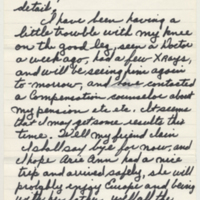 detail,
I have been having a
little trouble with my knee
on the good leg, seen a Doctor
a week ago, had a few XRays,
and will be seeing him again
to morrow, and contacted
a Compensation counselor about
my pension etc etc. It seems
that I may get some results this
time. Tell my friend claim
I shall say bye for now, and
I hope Arie Ann had a nice
trip and arrived safely, she will
probably enjoy Europe and being